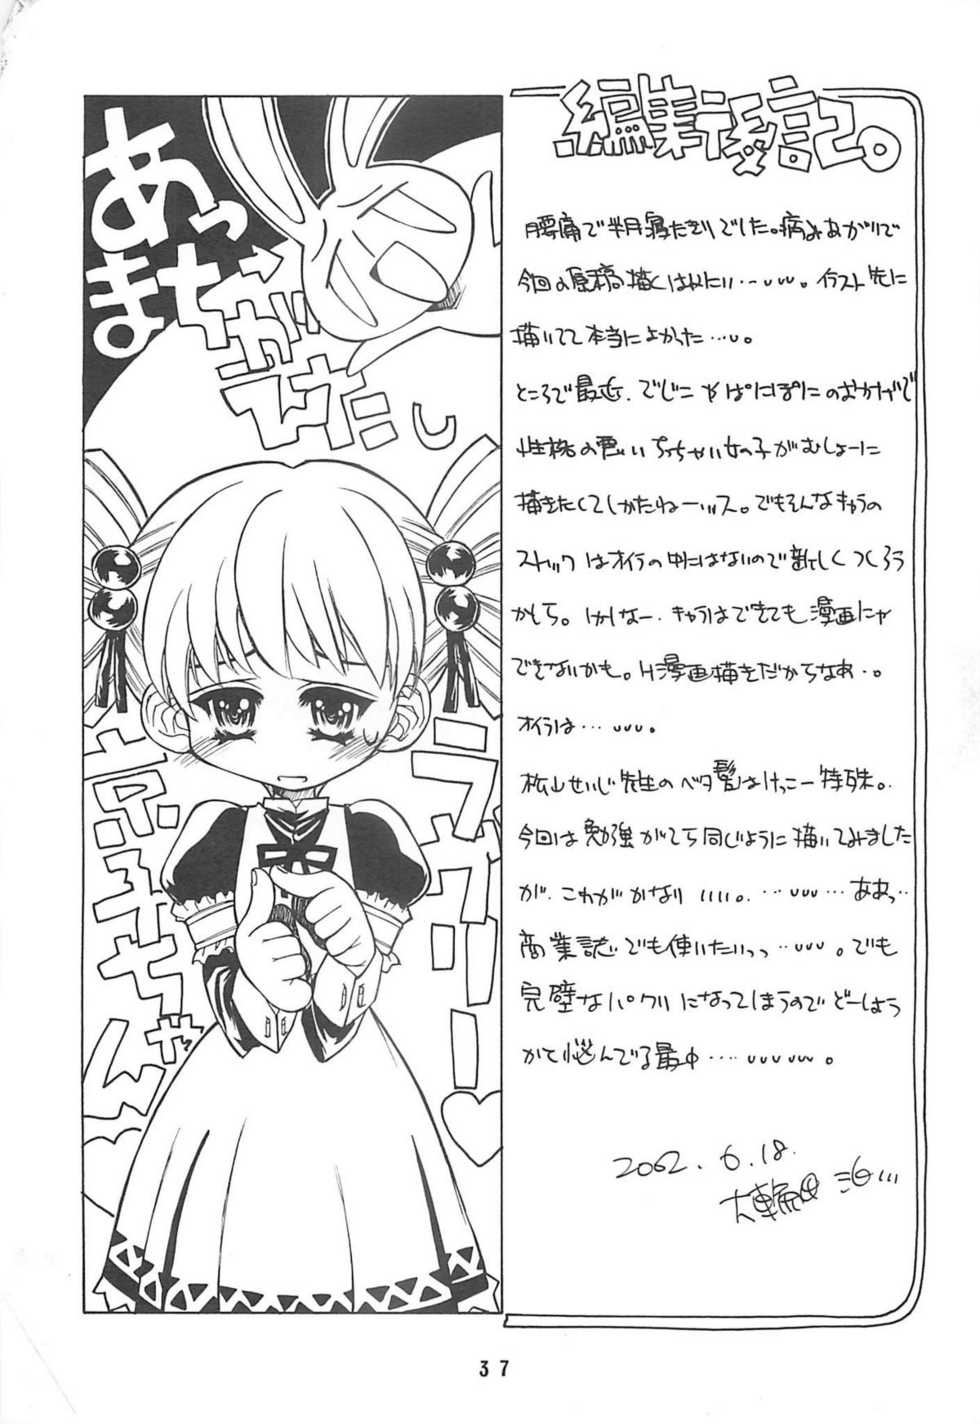 編集後記。
腰痛で半月寝たきりでした。病みあがりで
今回の原稿描くはめに…。イラスト先に
描いてて本当によかった…。
ところで最近、でじこやぱにぽにのおかげで
性格の悪いちっちゃい女の子がむしょーに
描きたくてしかたねーッス。でもそんなキャラの
ストックはオイラの中にはないので新しくつくろう
かしら。しかしなー、キャラはできても漫画にゃ
できないかも。H漫画描きだからなあ…。
オイラは……。
松山せいじ先生のベタ髪はけっこー特殊。
今回は勉強がてら同じように描いてみました
が、これがかなりいいい。……ああっ…
商業誌でも使いたいっっ……。でも
完璧なパクリになってしまうのでどーしよう
かと悩んでる最中……。
2002.6.18.
大輪田
あっ
まちがえ
ました
ラヴリー
京子ちゃん
37